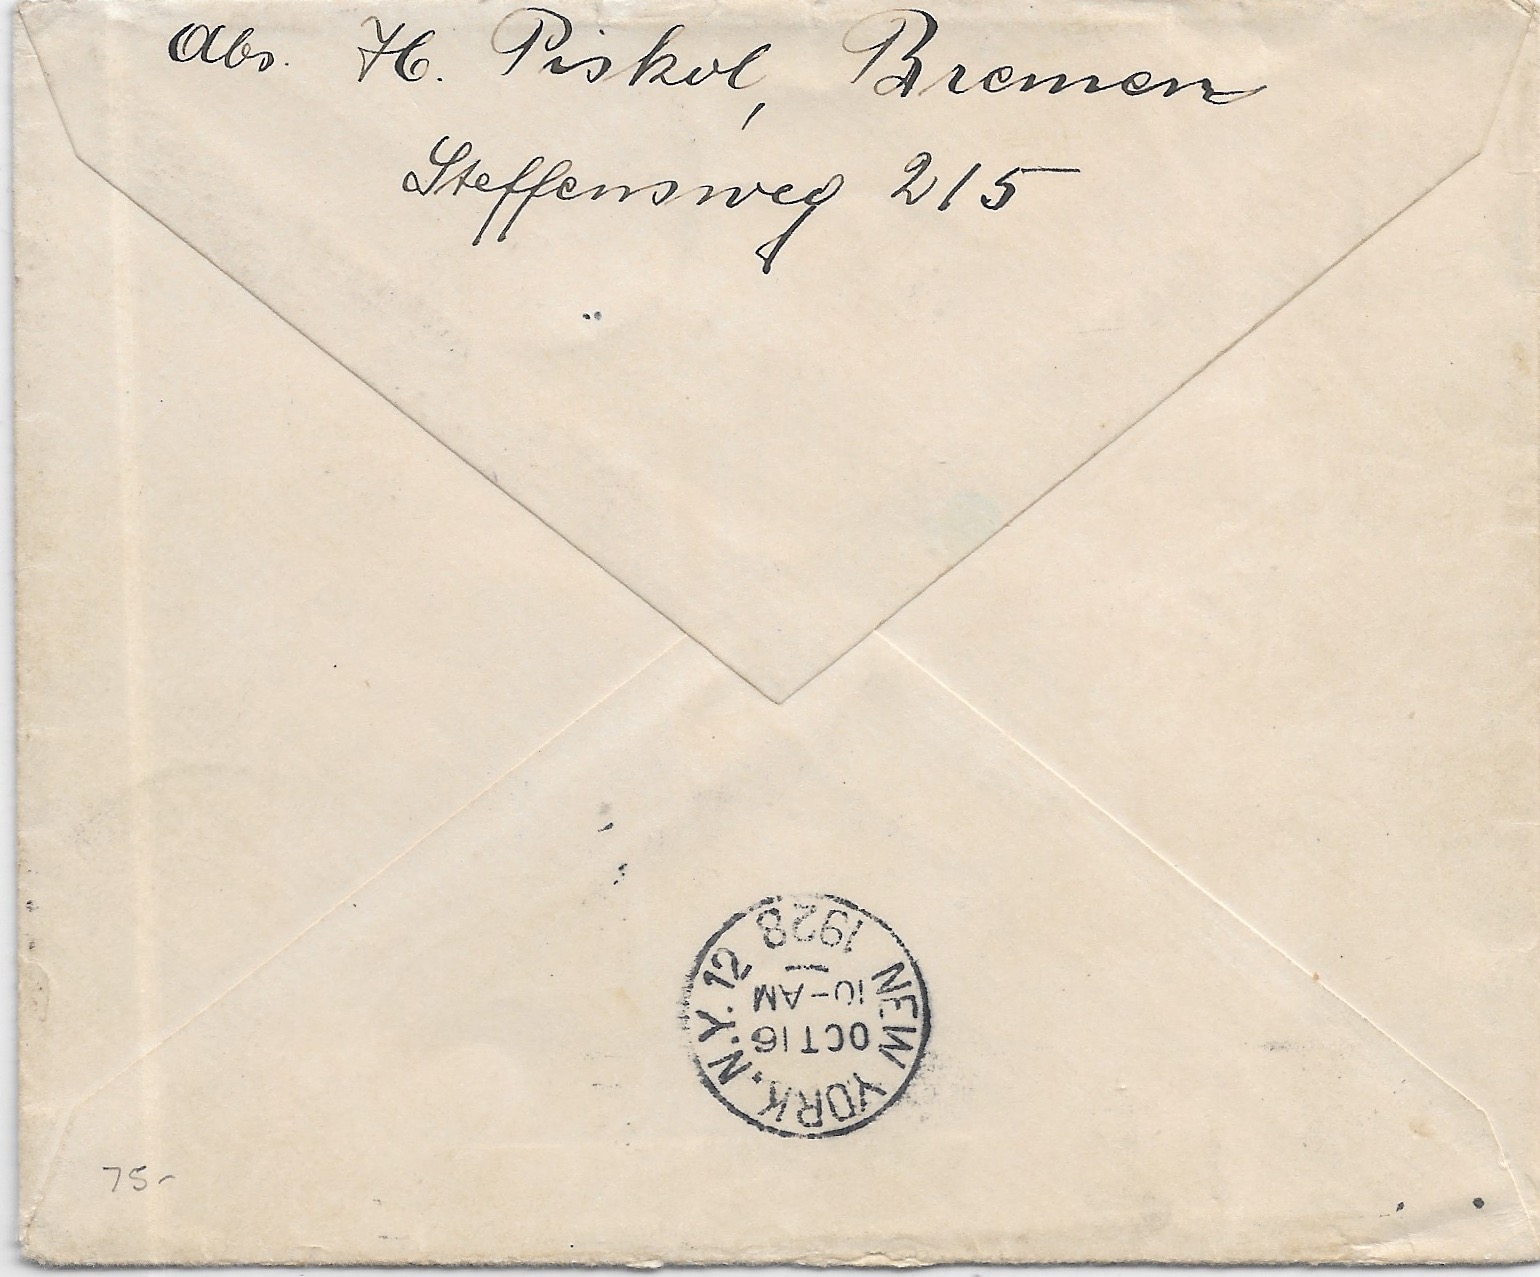 Abs. H. Piskol, Bremen
Steffensweg 215
NEW YORK, N.Y. 12
1928
10-AM
OCT 16
75-